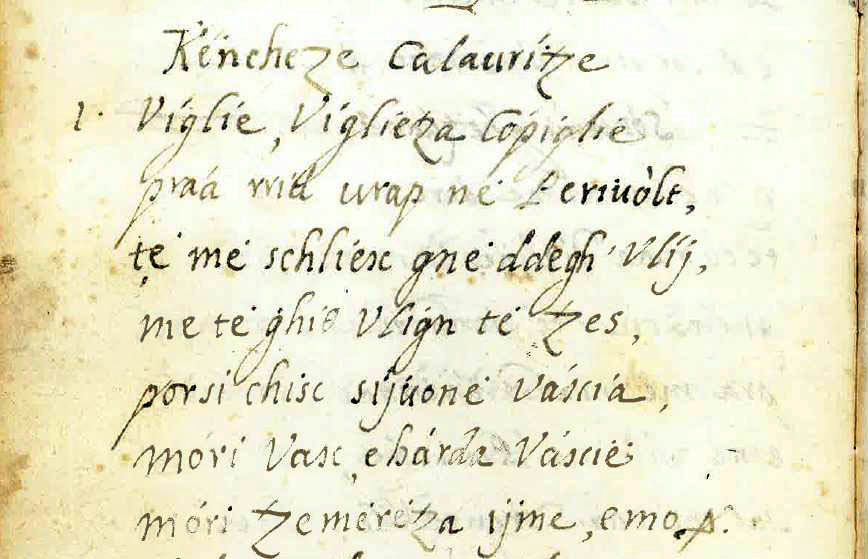 Këncheze Calauritze
1. Viglie, Viglietza Copiglie
praá rrid urap në Perivòlt,
të më schliesc gnë ddegh' Vlij,
me të ghiθ Vlign të tzes,
porsi chisc sijvonë Váscia,
móri Vasc, e bárda Váscië
móri tzëmërëtza ijme, emo